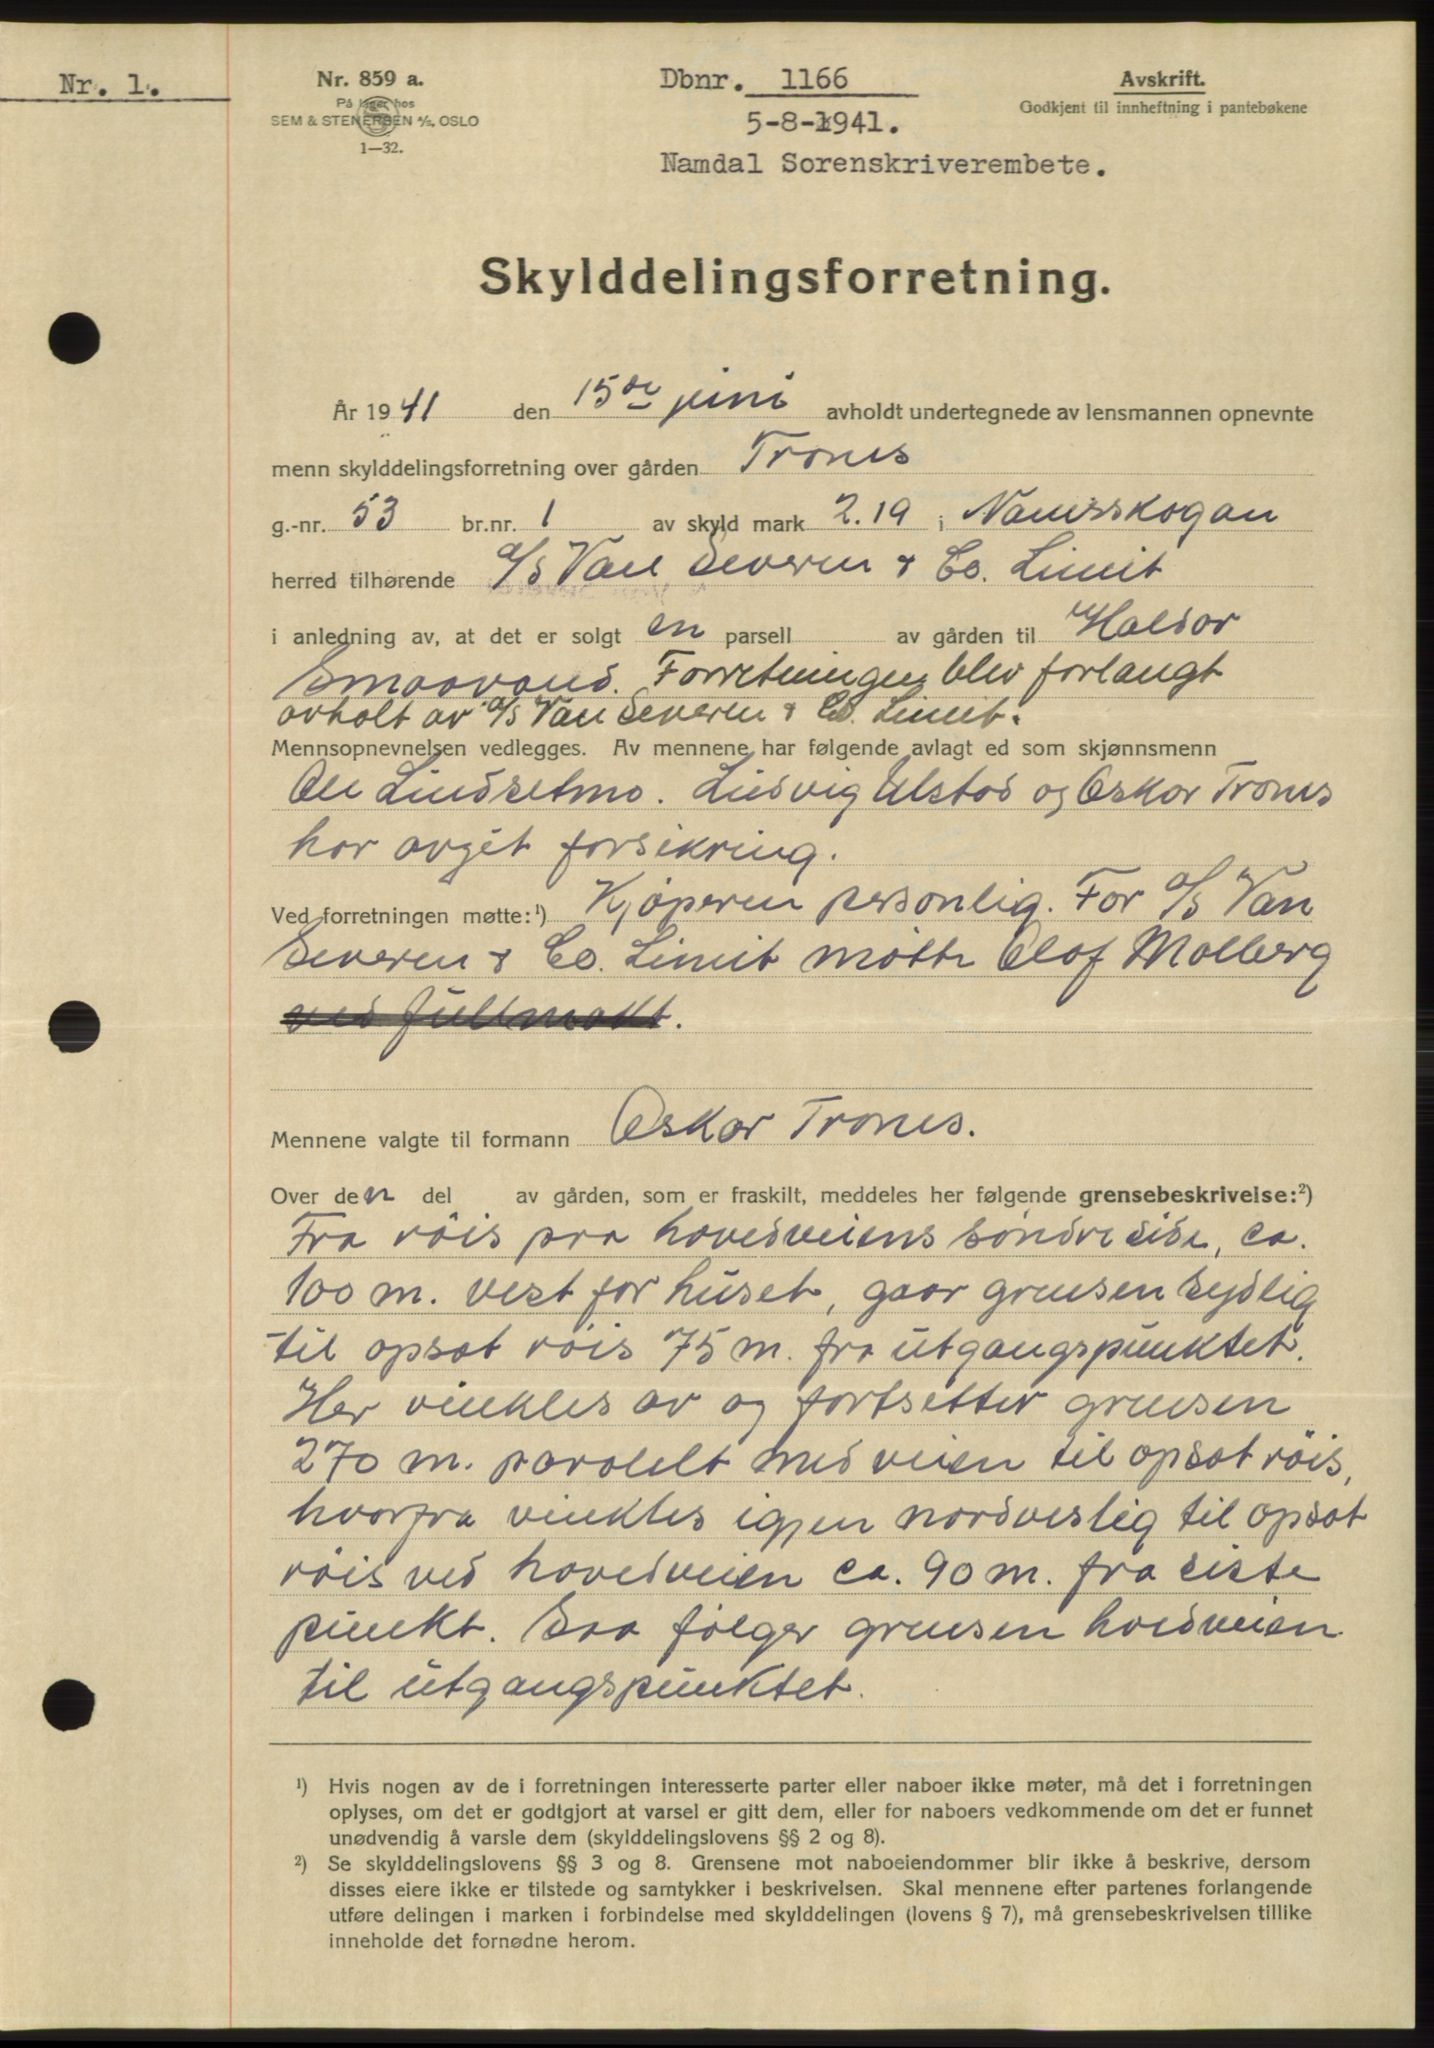 Nr. 1.
Nr. 859 a.
På lager hos
SEM & STENERSEN A/S, OSLO
1—32.
Dbnr. 1166
5-8-1941.
Namdal Sorenskriverembete.
Avskrift.
Godkjent til innheftning i pantebøkene
Skylddelingsforretning.
År 1941 den 15de juni avholdt undertegnede av lensmannen opnevnte
menn skylddelingsforretning over gården Trones
g.-nr. 53 br.nr. 1 av skyld mark 2.19 i Namsskogan
herred tilhørende A/S Van Severen & Co. Limit
i anledning av, at det er solgt en parsell av gården til Haldor
Smaavand. Forretningen blev forlangt
avholt av A/S Van Severen & Co. Limit.
Mennsopnevnelsen vedlegges. Av mennene har følgende avlagt ed som skjønnsmenn
Ole Lindsetmo. Ludvig Elstad og Oskar Trones
har avgit forsikring.
Ved forretningen møtte:¹) Kjøperen personlig. For A/S Van
Severen & Co. Limit møtte Olof Molberg
ved fullmakt.
Mennene valgte til formann Oskar Trones.
Over den del av gården, som er fraskilt, meddeles her følgende grensebeskrivelse:²)
Fra röis paa hovedveiens söndre side, ca.
100 m. vest for huset, gaar grensen sydlig
til opsat röis 75 m. fra utgangspunktet.
Her vinkles av og fortsetter grensen
270 m. paralelt med veien til opsat röis,
hvorfra vinkles igjen nordveslig til opsat
röis ved hovedveien ca. 90 m. fra siste
punkt. Saa følger grensen hovedveien
til utgangspunktet.
¹) Hvis nogen av de i forretningen interesserte parter eller naboer ikke møter, må det i forretningen
oplyses, om det er godtgjort at varsel er gitt dem, eller for naboers vedkommende om det er funnet
unødvendig å varsle dem (skylddelingslovens §§ 2 og 8).
²) Se skylddelingslovens §§ 3 og 8. Grensene mot naboeiendommer blir ikke å beskrive, dersom
disses eiere ikke er tilstede og samtykker i beskrivelsen. Skal mennene efter partenes forlangende
utføre delingen i marken i forbindelse med skylddelingen (lovens § 7), må grensebeskrivelsen tillike
inneholde det fornødne herom.